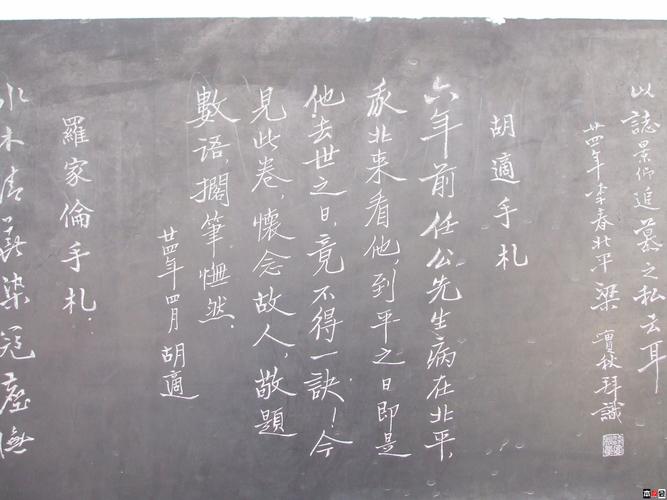 以誌景仰追慕之私去耳
廿四年季春北平梁實秋拜識
胡適手札
六年前任公先生病在北平，
我北来看他，到平之日即是
他去世之日，竟不得一訣！今
見此卷，懷念故人，敬題
數语，擱筆憮然．
廿四年四月胡適
羅家倫手札．
水木清